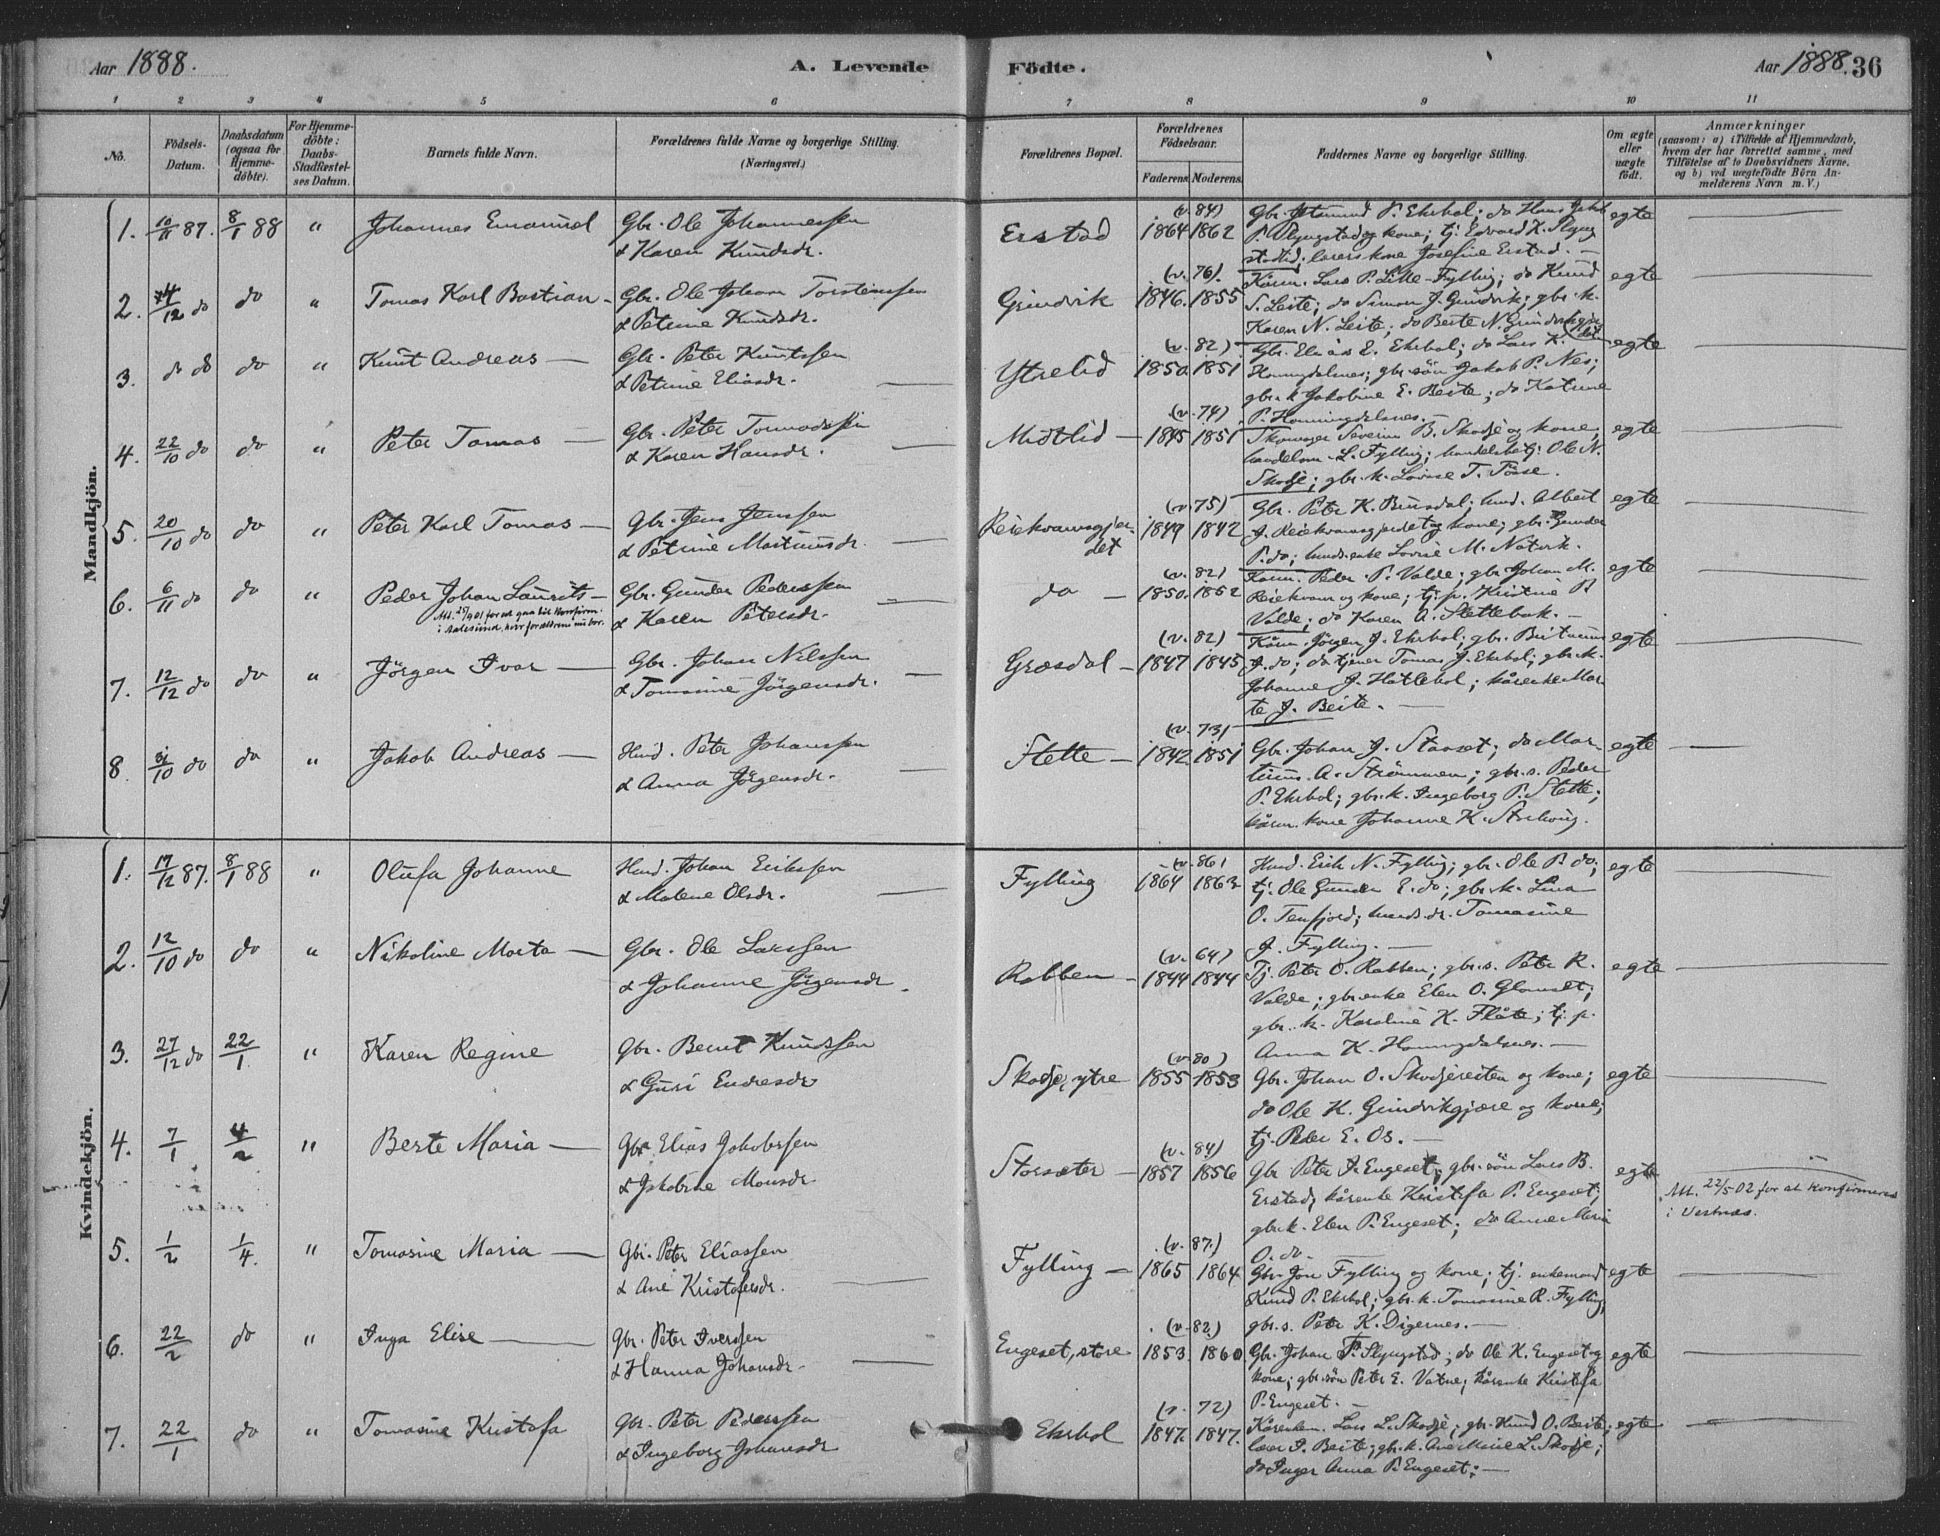 Aar 1888.
A. Levende Födte.
Aar 1888. 36
1 2 3 4 5 6 7 8 9 10 11
No.
Födsels-Datum.
Daabsdatum (ogsaa for Hjemme-döbte).
For Hjemme-döbte: Daabs-Stadfæstel-ses Datum.
Barnets fulde Navn.
Forældrenes fulde Navne og borgerlige Stilling. (Næringsvei.)
Forældrenes Bopæl.
Forældrenes Födselsaar.
Faderens. Moderens.
Faddernes Navne og borgerlige Stilling.
Om ægte eller uægte födt.
Anmærkninger
(saasom: a) i Tilfælde af Hjemmedaab, hvem der har forrettet samme, med Tilföielse af to Daabsvidners Navne, og b) ved uægtefödte Börn Anmelderens Navn m. V.)
Mandkjön.
1. 10/11 87. 8/1 88 " Johannes Emanuel Gbr. Ole Johannessen & Karen Knudsdr. Erstad (v. 84) 1864 1862
P. Ehrhol; do Hans Jakob P. Slyngstad og kone; tj. Edvard K. Slyngstadlid; lærers kone Josefine Erstad. — egte
2. 4/12 do do " Tomas Karl Bastian Gbr. Ole Johan Torstenssen & Petrine Knudsdr. Grindvik (v. 76) 1846. 1855
Kårm. Lars P. Lille-Fylling; do Knud S. Leite; do Simon J. Grindvik; gbr. k. Karen N. Leite; do Berte N. Grindvikgjær egte
3. do do do " Knut Andreas — Gbr. Peter Knutssen & Petrine Eliasdr. Ytrelid (v. 82) 1850. 1851
Gbr. Elias E. Ehrhol; do Lars K. Honngdalsnes; gbr. sön Jakob P. Nes; gbr. k. Jakobine E. Beite; do Katrine P. Honningdalsnes. — egte
4. 22/10 do do " Peter Tomas — Gbr. Peter Tormodssen & Karen Hansdr. Midtlid — (v. 74) 1845 1851
Skomager Severin B. Skodje og kone; handelsm. L. Fylling; handelsbetj. Ole N. Skodje; gbr. k. Lovise T. Tösse. egte
5. 20/10 do do " Peter Karl Tomas — Gbr. Jens Jenssen & Petrine Martinusdr. Reiekvamsgjerdet (v. 75) 1849 1842
Gbr. Peter K. Brusdal; husd. Albert J. Reiekvamsgjerdet og kone; gbr. Gunder P. do; husds. enke Lovise M. Natvik. egte
6. 6/11 do do " Peder Johan Laurits — Gbr. Gunder Pederssen & Karen Petersdr. do — (v. 82) 1850. 1852
Att. 25/9 01 for at gaa til Konfirm. i Aalesund, hvor forældrene nu bor.
Kårm. Peder P. Valde; gbr. Johan M. Reiekvam og kone; tj. p. Kristine P. Valde; do Karen A. Stettebak. — egte
7. 12/12 do do " Jörgen Ivar — Gbr. Johan Nilssen & Tomasine Jörgensdr. Græsdal — (v. 82) 1847 1845
Kårm. Jörgen J. Ehrhol; gbr. Bertinus J. do; do tjener Tomas J. Ehrhol; gbr. k. Johanne J. Hatlehol; kårenke Marte J. Beite. — egte
8. /10 do do " Jakob Andreas — Husd. Peter Johanssen & Anna Jörgensdr. Stette — (v. 73) 1842 1851
Gbr. Johan J. Staaset; do Martinus A. Strömmen; gbr. s. Peder P. Ehrhol; gbr. k. Ingeborg P. Stette; kårm. kone Johanne K. egte
Kvindekjön.
1. 17/12 87. 8/1 88 " Olufa Johanne Husd. Johan Erikssen & Malene Olsdr. Fylling (v. 86) 1864 1863
Husd. Erik N. Fylling; gbr. Ole P. do; tj. Ole Gunder E. do; gbr. k. Lina O. Tenfjord; husds. dr. Tomasine J. Fylling. — egte
2. 12/10 do do " Nikoline Marta — Gbr. Ole Larssen & Johanne Jörgensdr. Rabben — (v. 64) 1844 1844
Tj. Peter O. Rabben; gbr. s. Peter R. Valde; gbr. enke Elen O. Glomset; gbr. k. Karoline K. Flåte; tj. p. Anna K. Honngdalsnes. — egte
3. 27/12 do 22/1 " Karen Regine Gbr. Bernt Knudssen & Guri Endresdr Skodje, ytre (v. 80) 1855 1853
Gbr. Johan O. Skodjereiten og kone; do Ole K. Grindvikgjære og kone; tj. Peder E. Os. — egte
4. 7/1 4/2 " Berte Maria — Gbr. Elias Jakobssen & Jakobine Monsdr Storsæter — (v. 84) 1857 1856
Gbr. Peter J. Engeset; gbr. sön Lars B. Erstad; kårenke Kristofa P. Engeset; gbr. k. Elen P. Engeset; do Anne Maria O. do. egte
Att. 22/5 02 for at konfirmeres i Vestnæs.
5. 1/2 1/4. " Tomasine Maria — Gbr. Peter Eliassen & Ane Kristofersdr. Fylling — (v. 87.) 1865 1864
Gbr. Jon Fylling og kone; tj. enkemand Knud P. Ehrhol; gbr. k. Tomasine R. Fylling; gbr. s. Peter K. Digernes. — egte
6. 22/2 do " Inga Elise — Gbr. Peter Iverssen & Hanna Johansdr. Engeset, store (v. 82.) 1853. 1860
Gbr. Johan P. Slyngstad; do Ole K. Engeset og kone; gbr. sön Peter E. Vatne; kårenke Kristofa P. Engeset. — egte
7. 22/1 do " Tomasine Kristofa Gbr. Peter Pederssen & Ingeborg Johansdr Ehrhol (v. 72) 1847. 1847.
Kårenkem. Lars L. Skodje; gbr. Knud O. Beite; Lars I. Beite; gbr. k. Ane Marie L. Skodje; do Inger Anna P. Engeset; — egte